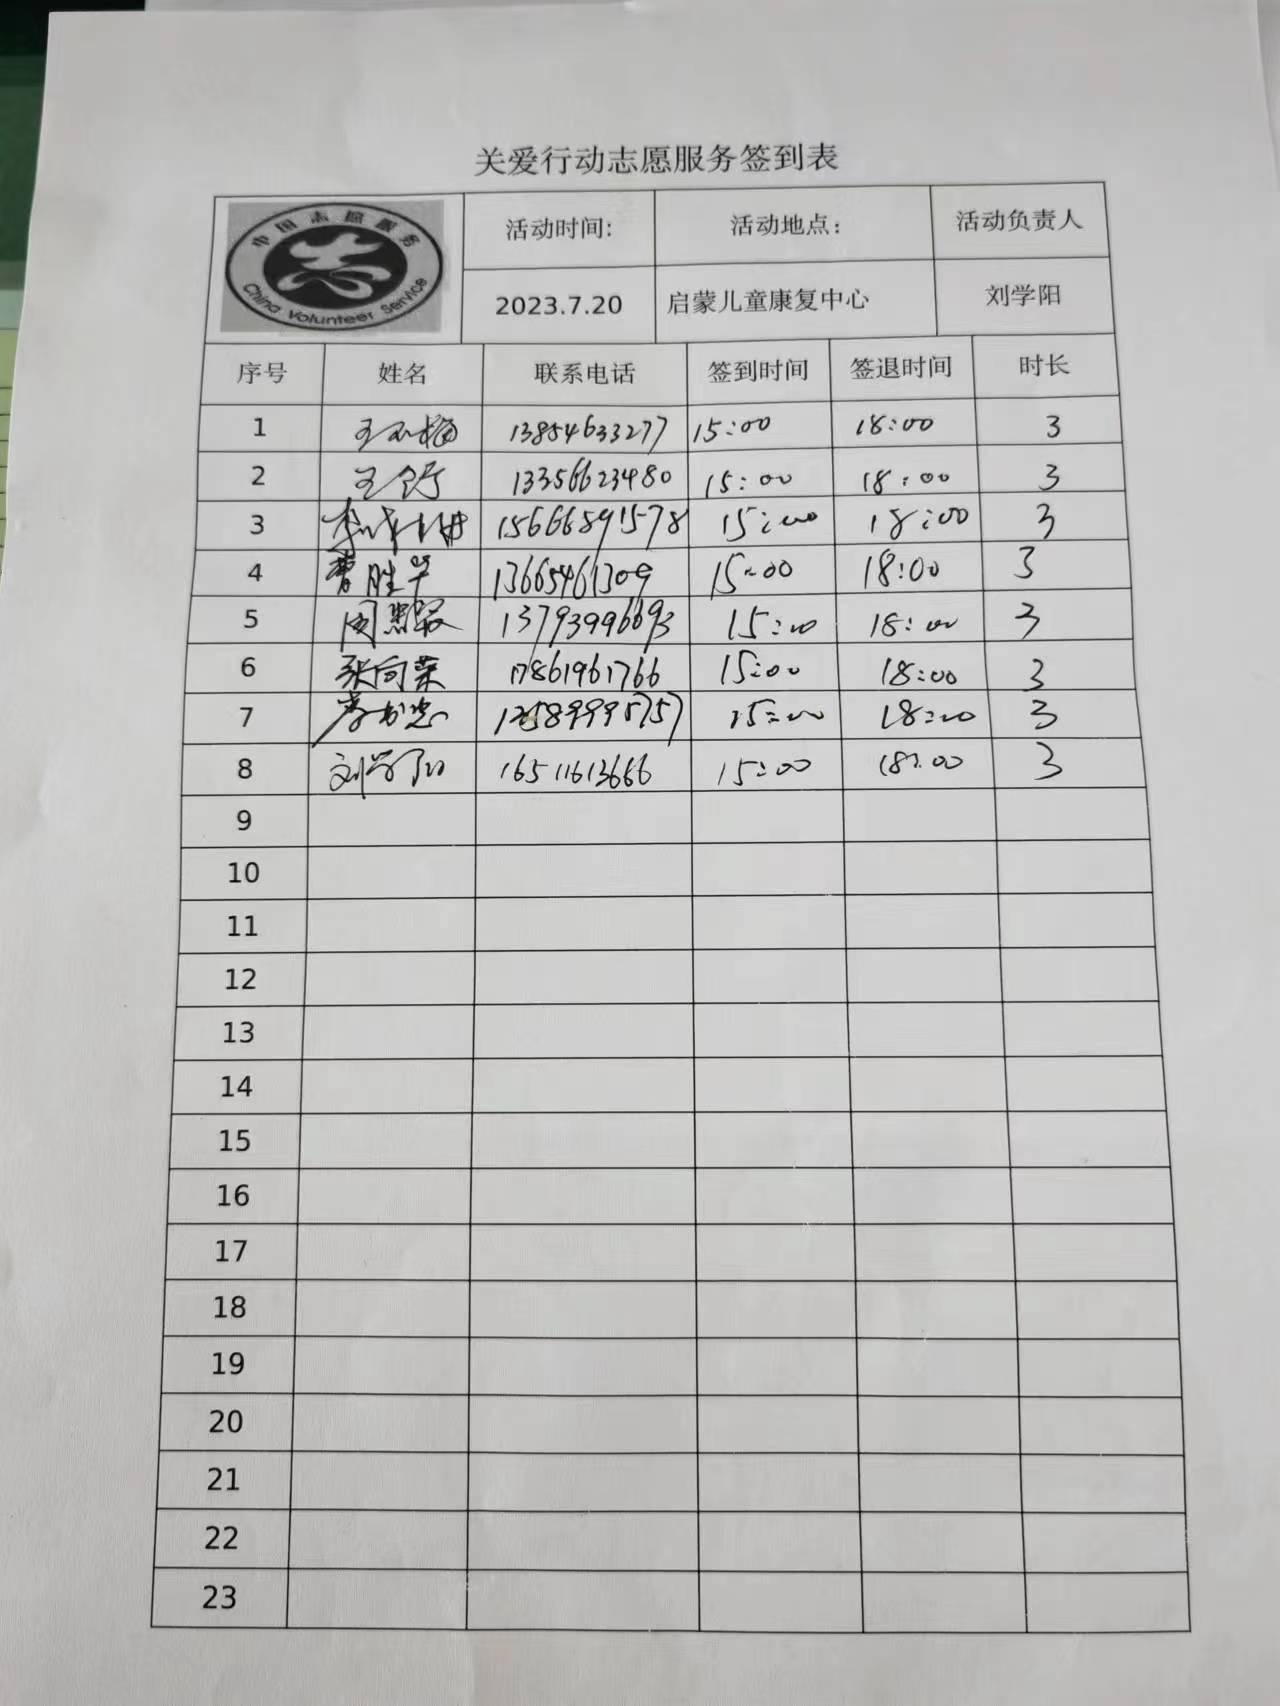 关爱行动志愿服务签到表
中国志愿服务
China Volunteer Service
活动时间: 活动地点: 活动负责人
2023.7.20 启蒙儿童康复中心 刘学阳
序号 姓名 联系电话 签到时间 签退时间 时长
1 王玉梅 13854633277 15:00 18:00 3
2 13356623480 15:00 18:00 3
3 15666891578 15:00 18:00 3
4 曹胜华 13665461309 15:00 18:00 3
5 13793996693 15:00 18:00 3
6 张向荣 17861961766 15:00 18:00 3
7 15:00 18:00 3
8 刘学阳 16511613666 15:00 18:00 3
9
10
11
12
13
14
15
16
17
18
19
20
21
22
23